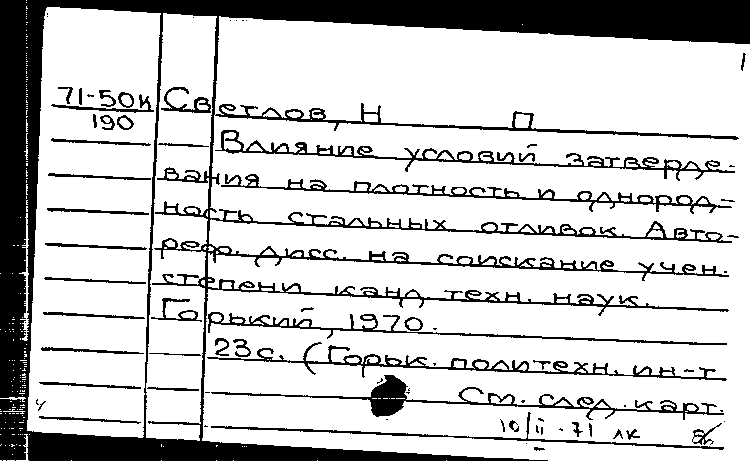 1
71-50к Светлов, Н П
190
Влияние условий затверде-
вания на плотность и однород-
ность стальных отливок. Авто-
реф. дисс. на соискание учен.
степени канд. техн. наук.
Горький, 1970.
23с. (Горьк. политехн. ин-т
См. след. карт.
10/II-71 лк
4